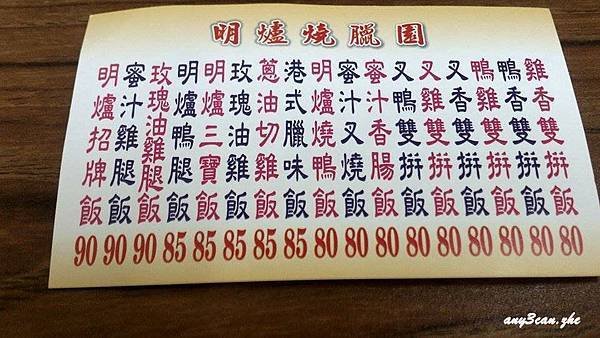 明爐燒臘園
明爐招牌飯 90
蜜汁雞腿飯 90
玫瑰油雞腿飯 90
明爐鴨腿飯 85
明爐三寶飯 85
玫瑰油雞飯 85
蔥油切雞飯 85
港式臘味飯 85
明爐燒鴨飯 80
蜜汁叉燒飯 80
蜜汁香腸飯 80
叉鴨雙拼飯 80
叉雞雙拼飯 80
叉香雙拼飯 80
鴨雞雙拼飯 80
鴨香雙拼飯 80
雞香雙拼飯 80
any3can.zhe